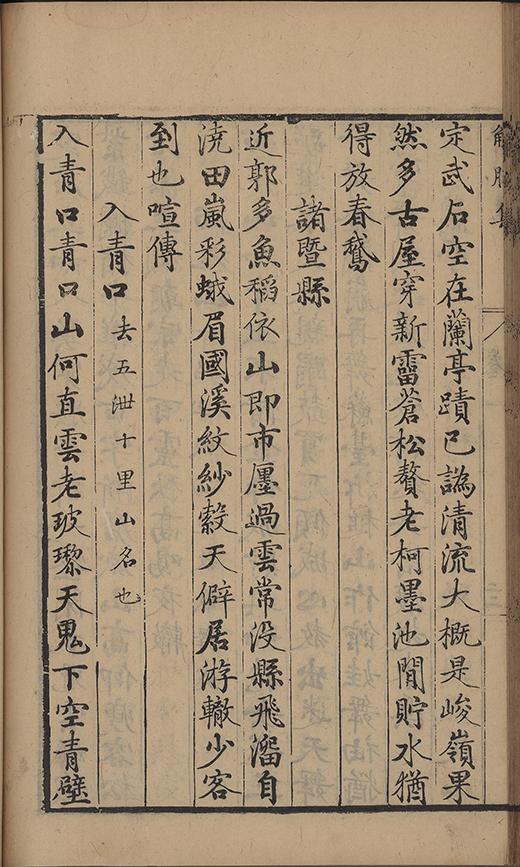 解脫集
定武石空在蘭亭蹟已譌清流大概是峻嶺果
然多古屋穿新霤蒼松贅老柯墨池閒貯水猶
得放春鵞
諸暨縣
近郭多魚稻依山即市廛過雲常没縣飛溜自
澆田嵐彩蛾眉國溪紋紗縠天僻居游轍少客
到也喧傳
入青口去五泄十里山名也
入青口青口山何直雲老玻瓈天鬼下空青壁